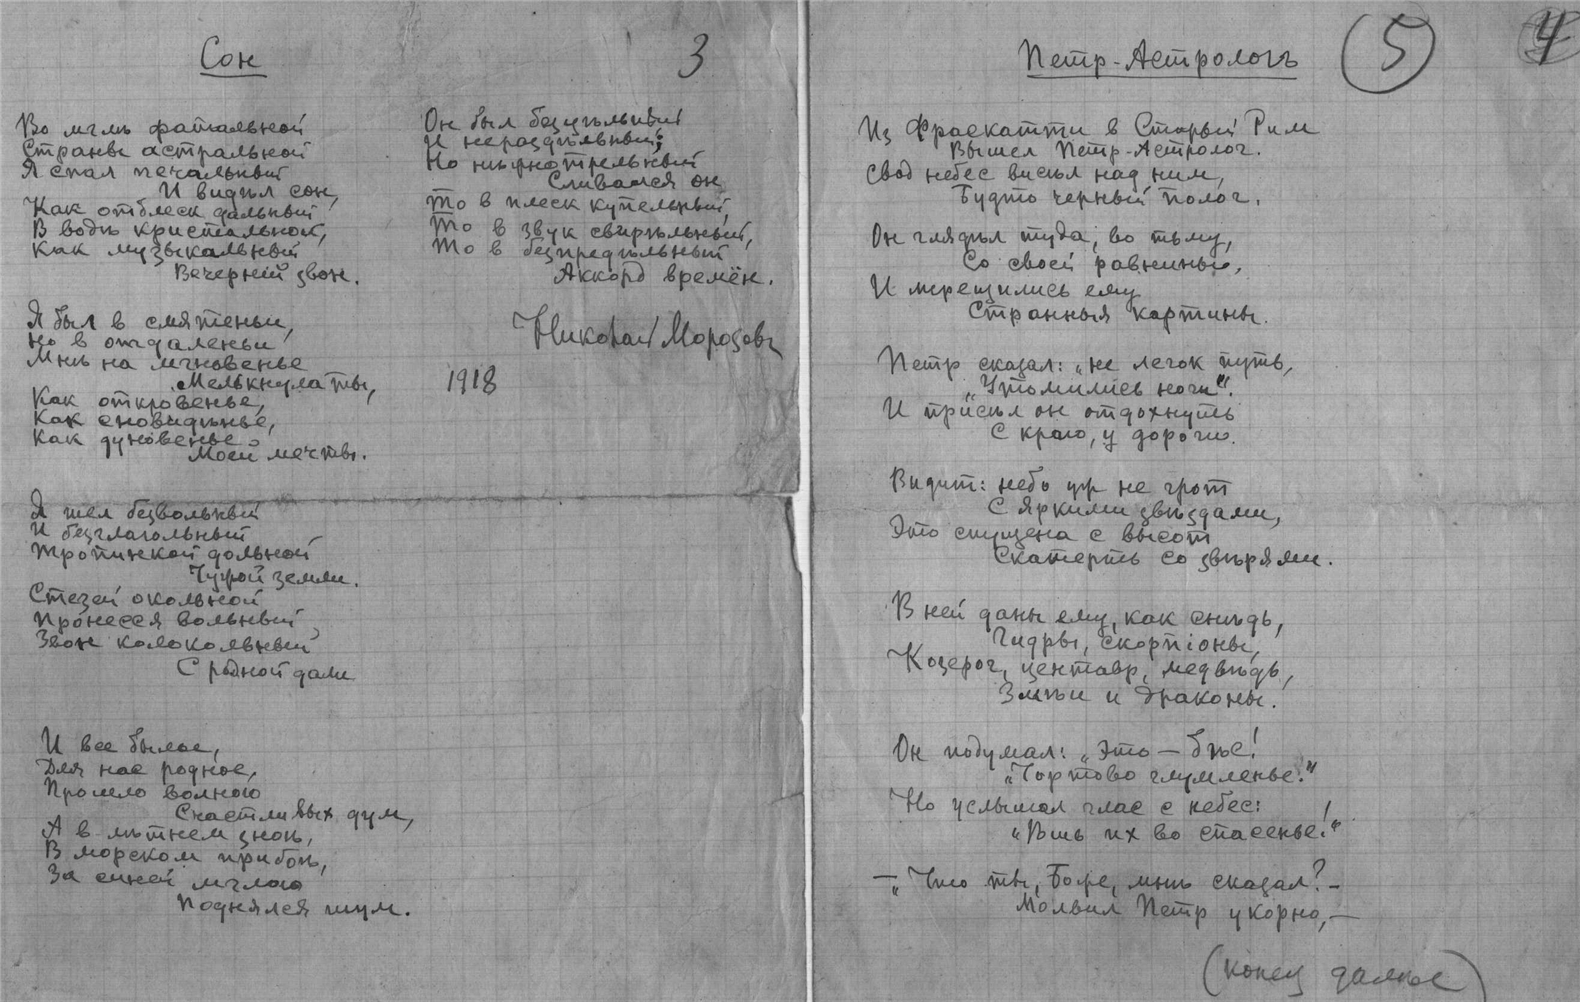 Сон
3
Во мглѣ фатальной
Страны астральной
Я спал печальный
И видѣл сон,
Как отблеск дальный
В водѣ кристальной,
Как музыкальный
Вечерний звон.
Я был в смятеньи,
Но в отдаленьи
Мнѣ на мгновенье
Мелькнула ты,
Как откровенье,
Как сновидѣнье,
Как дуновенье
Моей мечты.
Я шел безвольный
И безглагольный
Тропинкой дольной
Чужой земли.
Стезей окольной
Пронесся вольный
Звон колокольный
С родной дали
И все былое,
Для нас родное,
Прошло волною
Счастливых дум,
А в лѣтнем зноѣ,
В морском прибоѣ,
За синей мглою
Поднялся шум.
Он был безцѣльный
И нераздѣльный;
Но
Сливался он
То в плеск купельный,
То в звук свирѣльный,
То в безпредѣльный
Аккорд времён.
Николай Морозовъ
1918
Петр-Астрологъ
5
4
Из Фраскатти в Старый Рим
Вышел Петр-Астролог.
Свод небес висѣл над ним,
Будто черный полог.
Он глядѣл туда, во тьму,
Со своей равнины,
И мерещились ему
Странныя картины.
Петр сказал: „не легок путь,
„Утомились ноги“.
И присѣл он отдохнуть
С краю, у дороги.
Видит: небо уж не грот
С яркими звѣздами,
Это спущена с высот
Скатерть со звѣрями.
В ней даны ему, как снѣдь,
Гидры, скорпіоны,
Козерог, центавр, медвѣдь,
Змѣи и драконы.
Он подумал: „Это — бѣс!
„Чортово глумленье!“
Но услышал глас с небес:
„Ѣшь их во спасенье!“
— „Что ты, Боже, мнѣ сказал? —
Молвил Петр укорно, —
(конец далѣе)